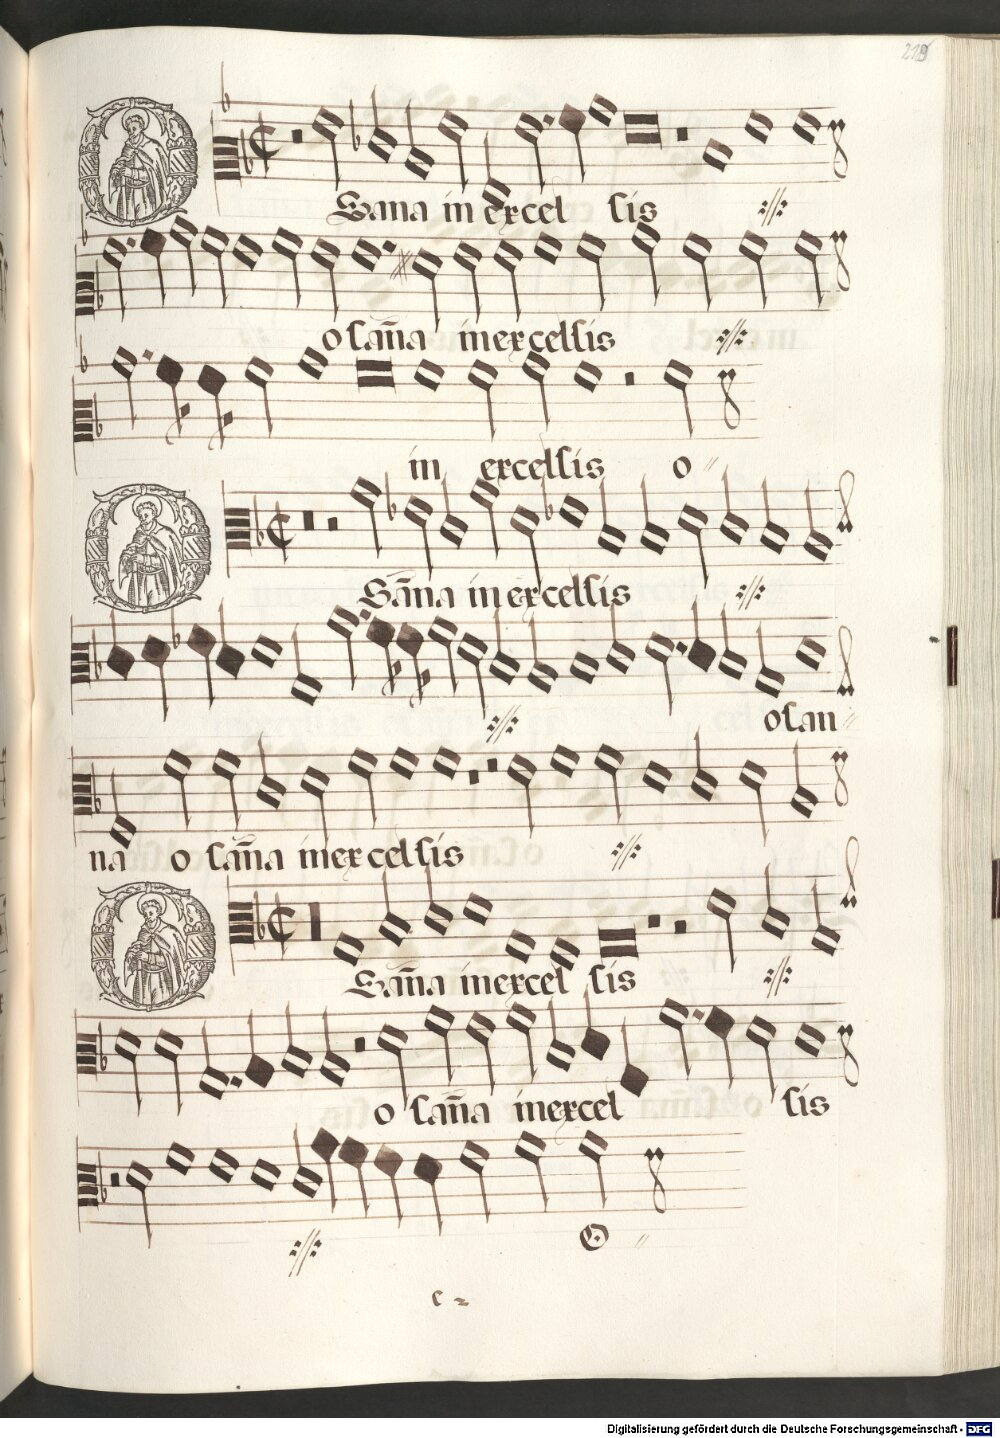 219
Sana in excel sis
osan̄a inexcelsis
in excelsis o
San̄a in excelsis
osan
na o san̄a inexcelsis
San̄a inexcel sis
o san̄a inexcel sis
O
Digitalisierung gefördert durch die Deutsche Forschungsgemeinschaft - DFG